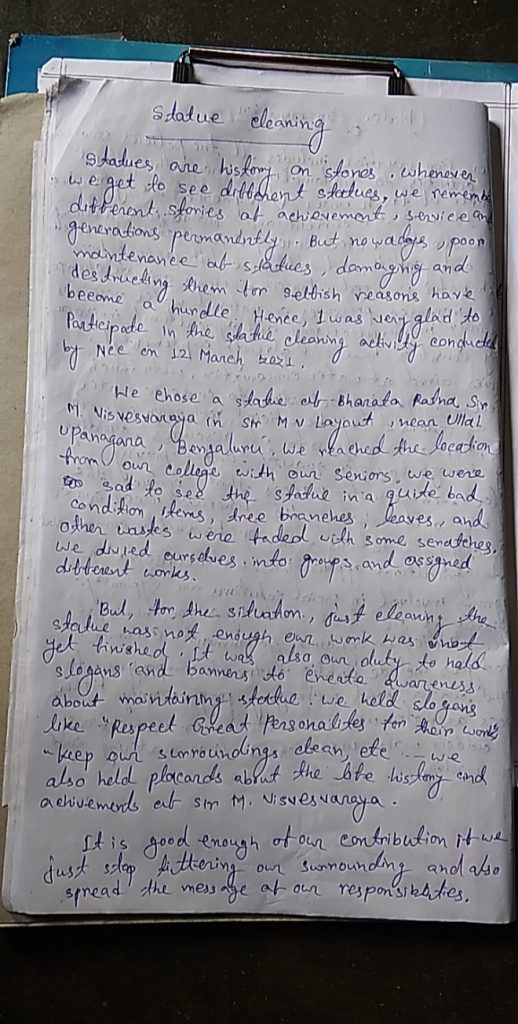 Statue cleaning
Statues are history on stones. whenever
we get to see different statues, we remember
different stories of achievement, service and
generations permanently. But nowadays, poor
maintenance of statues, damaging and
destructing them for selfish reasons have
become a hundle. Hence, I was very glad to
Participate in the statue cleaning activity conducted
by Ncc on 12 March 2021.
We chose a statue of Bharata Ratna, Sir
M. Visvesvaraya in Sir M V Layout, near Ullal
Upanagara, Bengaluru. we reached the location
from our college with our seniors. we were
sad to see the statue in a quite bad
condition, items, tree branches, leaves, and
other wastes were faded with some scratches.
we divied ourselves into groups and assigned
different works.
But, for the situation, just cleaning the
statue was not enough our work was not
yet finished. It was also our duty to hold
slogans and banners to create awareness
about maintaining statue. we held slogans
like "Respect Great Personalites for their works
"keep our surroundings clean, etc ... we
also held placards about the life history and
achivements of sir M. Visvesvaraya.
It is good enough of our contribution if we
just stop littering our surrounding and also
spread the message of our responsibilities.